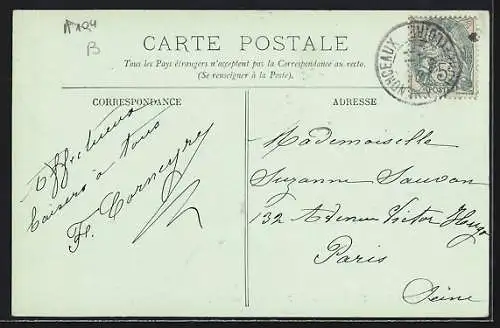 N° 104
B
CARTE POSTALE
Tous les Pays étrangers n'acceptent pas la Correspondance au recto.
(Se renseigner à la Poste).
CORRESPONDANCE
Affectueux
baisers à tous
F. Corneyre
ADRESSE
Mademoiselle
Suzanne Sauvan
132 Avenue Victor Hugo
Paris
Seine
BORDEAUX